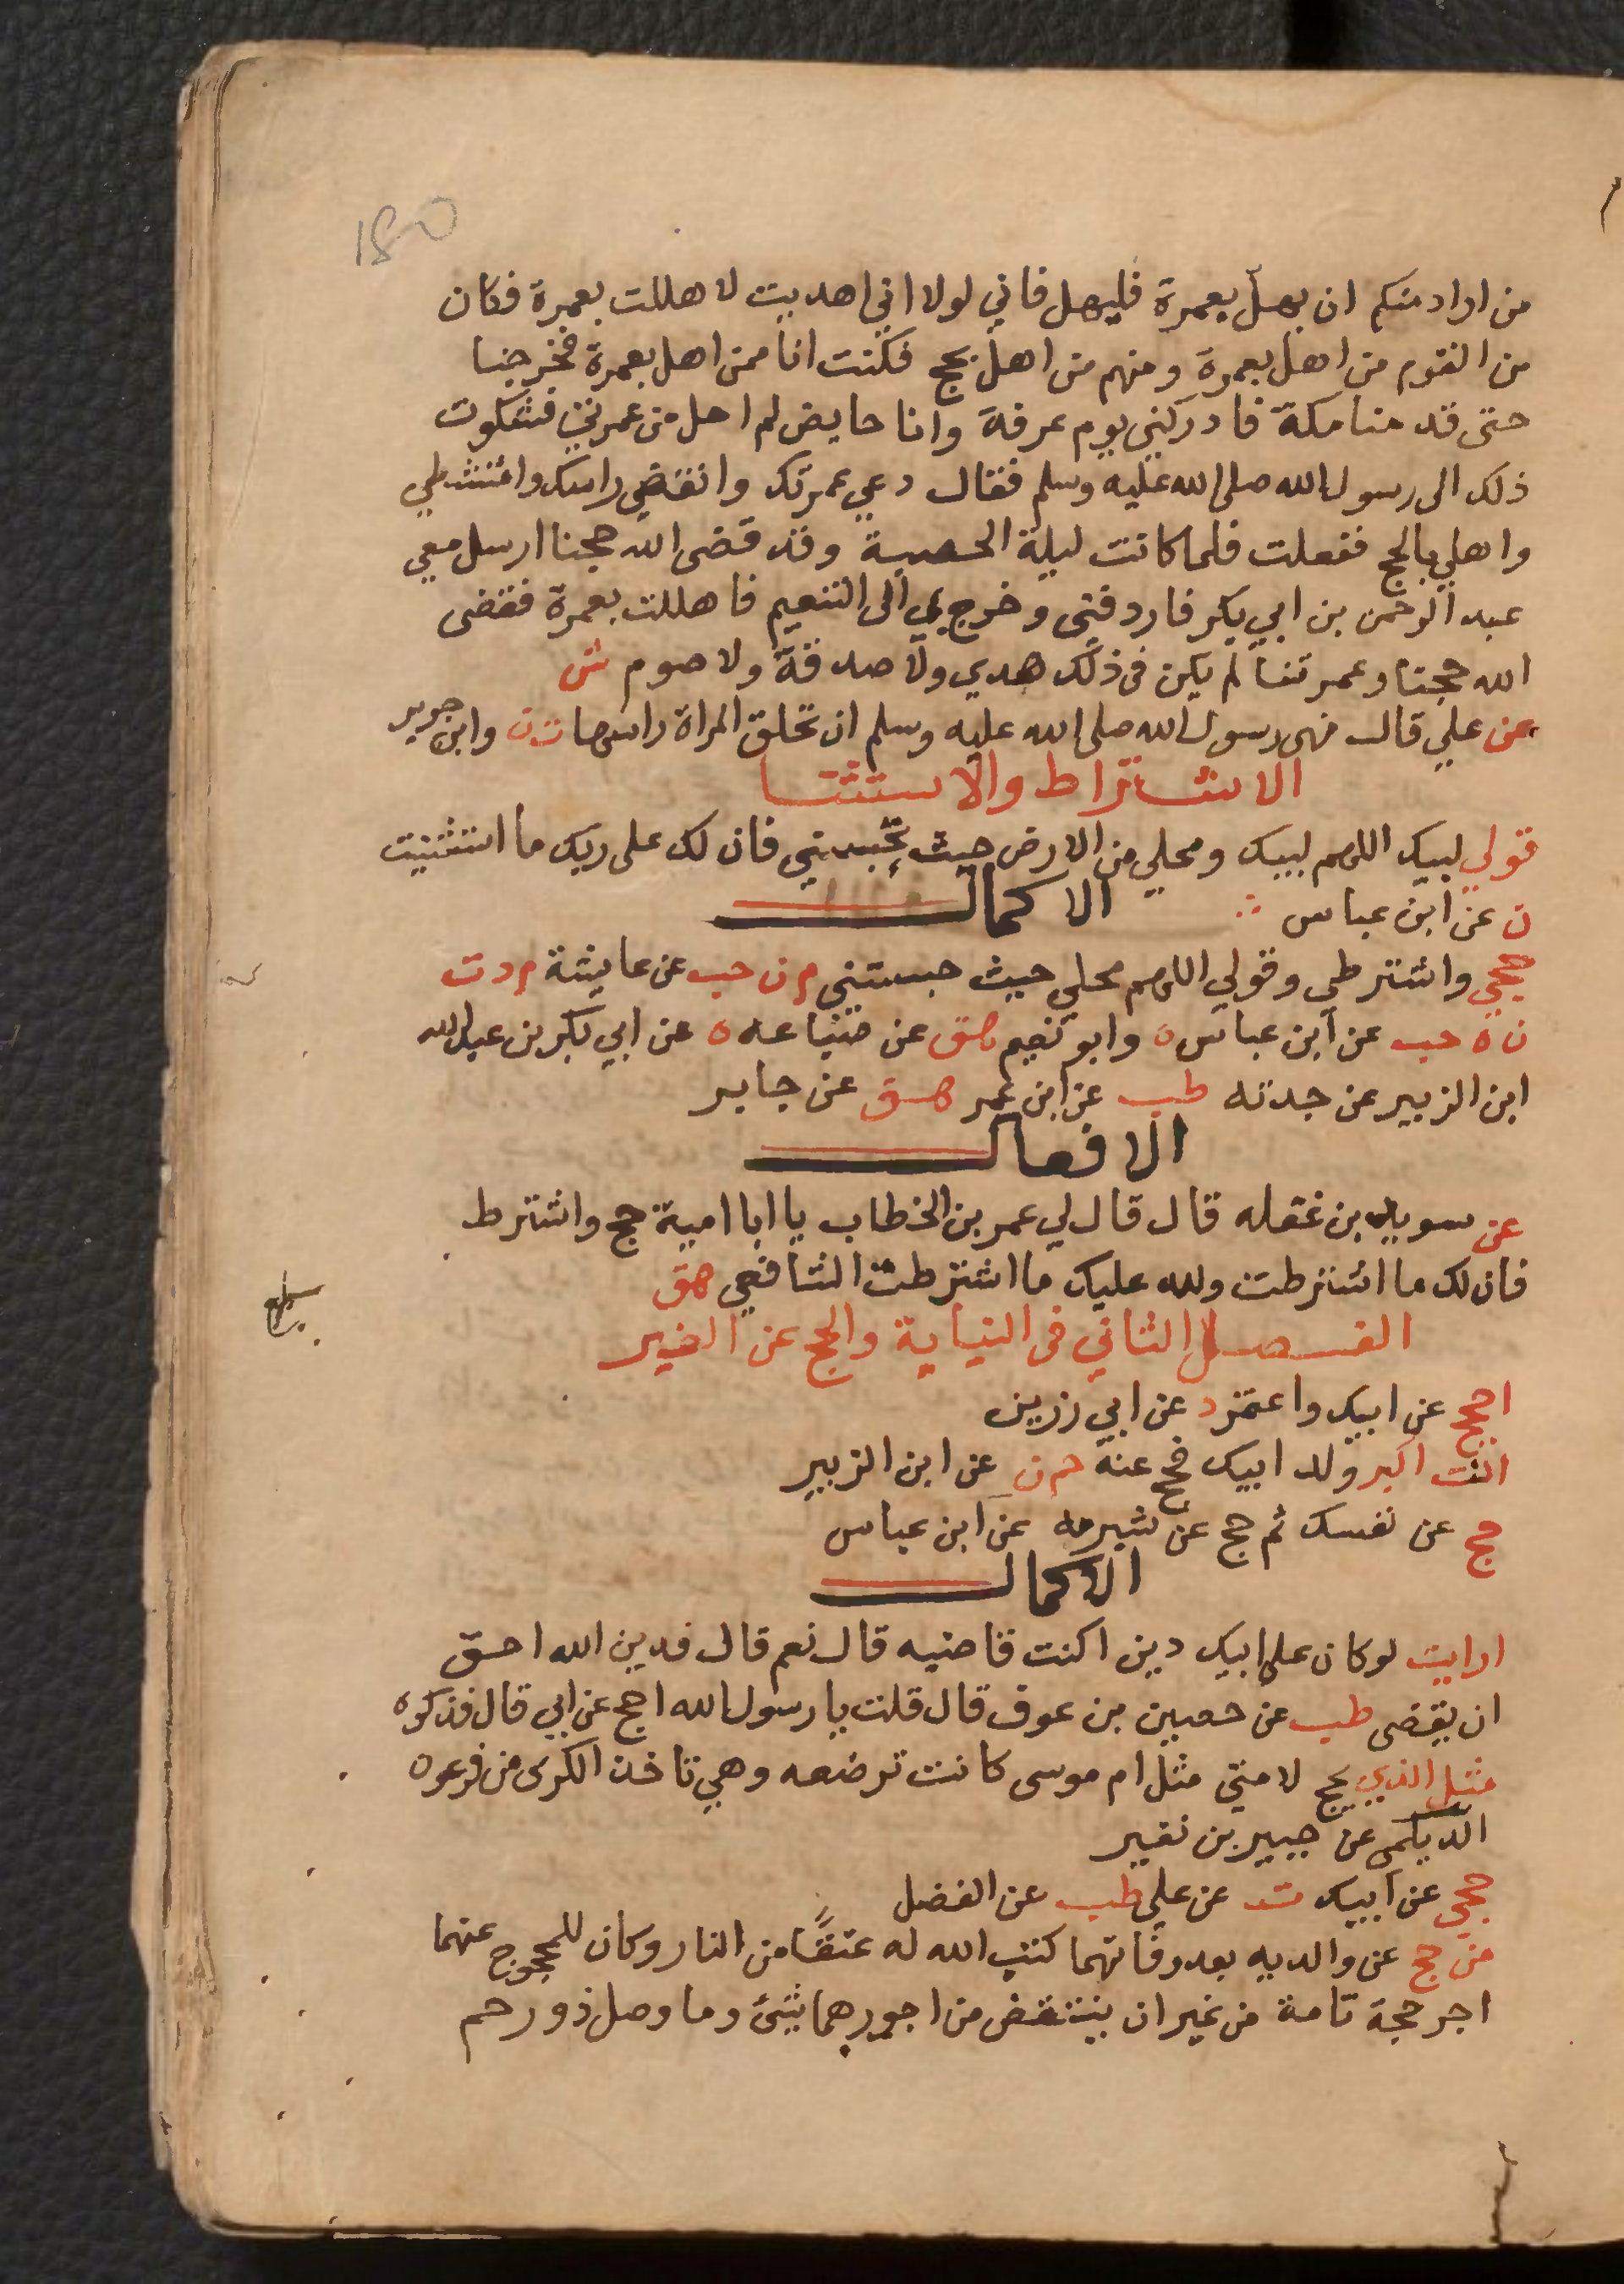 180
من اراد منكم ان يهلّ بعمرة فليهل فاني لولا اني اهديت لاهللت بعمرة فكان
من القوم من اهل بعمرة ومنهم من اهل بحج فكنت انا ممن اهل بعمرة فخرجنا
حتى قدمنا مكة فادركني يوم عرفة وانا حايض لم احل من عمرتي فشكوت
ذلك الى رسول الله صلى الله عليه وسلم فقال دعي عمرتك وانقضي راسك وامتشطي
واهلي بالحج ففعلت فلما كانت ليلة الحصبة وقد قضى الله حجنا ارسل معي
عبد الرحمن بن ابي بكر فاردفني وخرج بي الى التنعيم فاهللت بعمرة فقضى
الله حجتنا وعمرتنا لم يكن في ذلك هدي ولا صدقة ولا صوم ش
عن علي قال نهى رسول الله صلى الله عليه وسلم ان تحلق المراة راسها ت ن وابن جرير
الاشتراط والاستثنا
قولي لبيك اللهم لبيك ومحلي من الارض حيث تحبسني فان لك على ربك ما استثنيت
ن عن ابن عباس
الاكمال
حجي واشترطي وقولي اللهم محلي حيث حبستني م ن حب عن عايشة م د ت
ن ه حب عن ابن عباس ه وابو نعيم هق عن ضباعه ه عن ابي بكر بن عبد الله
ابن الزبير عن جدته طب عن ابن عمر هق عن جابر
الافعال
عن سويد بن غفله قال قال لي عمر بن الخطاب يا ابا امية حج واشترط
فان لك ما اشترطت ولله عليك ما اشترطت الشافعي هق
الفصل الثاني في النيابة والحج عن الغير
احجج عن ابيك واعتمر د عن ابي رزين
انت اكبر ولد ابيك فحج عنه حم ن عن ابن الزبير
حج عن نفسك ثم حج عن شبرمه عن ابن عباس
الاكمال
ارايت لو كان على ابيك دين اكنت قاضيه قال نعم قال فدين الله احق
ان يقضى طب عن حصين بن عوف قال قلت يا رسول الله احج عن ابي قال فذكره
مثل الذي يحج لامتي مثل ام موسى كانت ترضعه وهي تاخذ الكرى من فرعون
الديلمي عن جبير بن نفير
حجي عن ابيك ت عن علي طب عن الفضل
من حج عن والديه بعد وفاتهما كتب الله له عتقًا من النار وكان للمحجوج عنهما
اجر حجة تامة من غير ان ينتقض من اجورهما شئ وما وصل ذو رحم